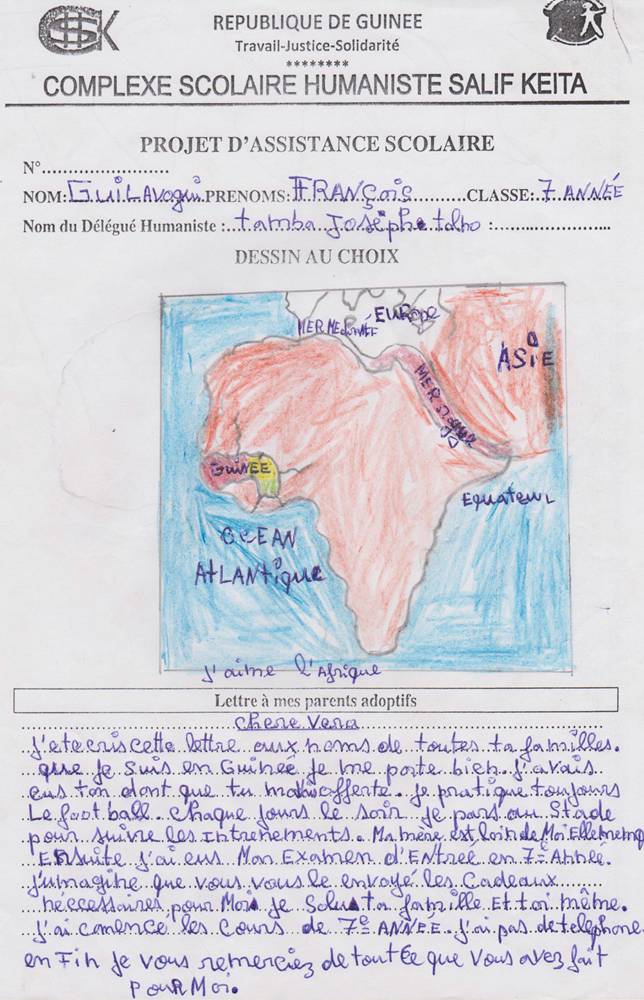 SK
REPUBLIQUE DE GUINEE
Travail-Justice-Solidarité
********
COMPLEXE SCOLAIRE HUMANISTE SALIF KEITA
PROJET D'ASSISTANCE SCOLAIRE
N°........................
NOM: GUILAVOgui PRENOMS: FRANÇois CLASSE: 7 ANNÉE
Nom du Délégué Humaniste : tamba Josephe tolno :
DESSIN AU CHOIX
EUROPE
MER
ASiE
MER
GUiNEE
Equateur
OCEAN
AtLANtique
j'aime l'Afrique
Lettre à mes parents adoptifs
chere Vera
J'etecris cette lettre aux noms de toutes ta familles.
que je suis en Guineé je me porte bien. j'avais
eus ton dont que tu offerte. je pratique toujours
Le foot ball. chaque jours le soir je pars au Stade
pour suivre les intrenements. Ma mère est loin de Moi Elle
Ensuite j'ai eus Mon Examen d'Entrée en 7e Année.
j'umagine que vous vous le envoyé les Cadeaux
neccessaires pour Moi je Salus ta famille Et toi même.
j'ai comence les Cours de 7e ANNÉE. j'ai pas de telephone.
en Fin je vous remerciez de tout ce que vous avez fait
POUR Moi.